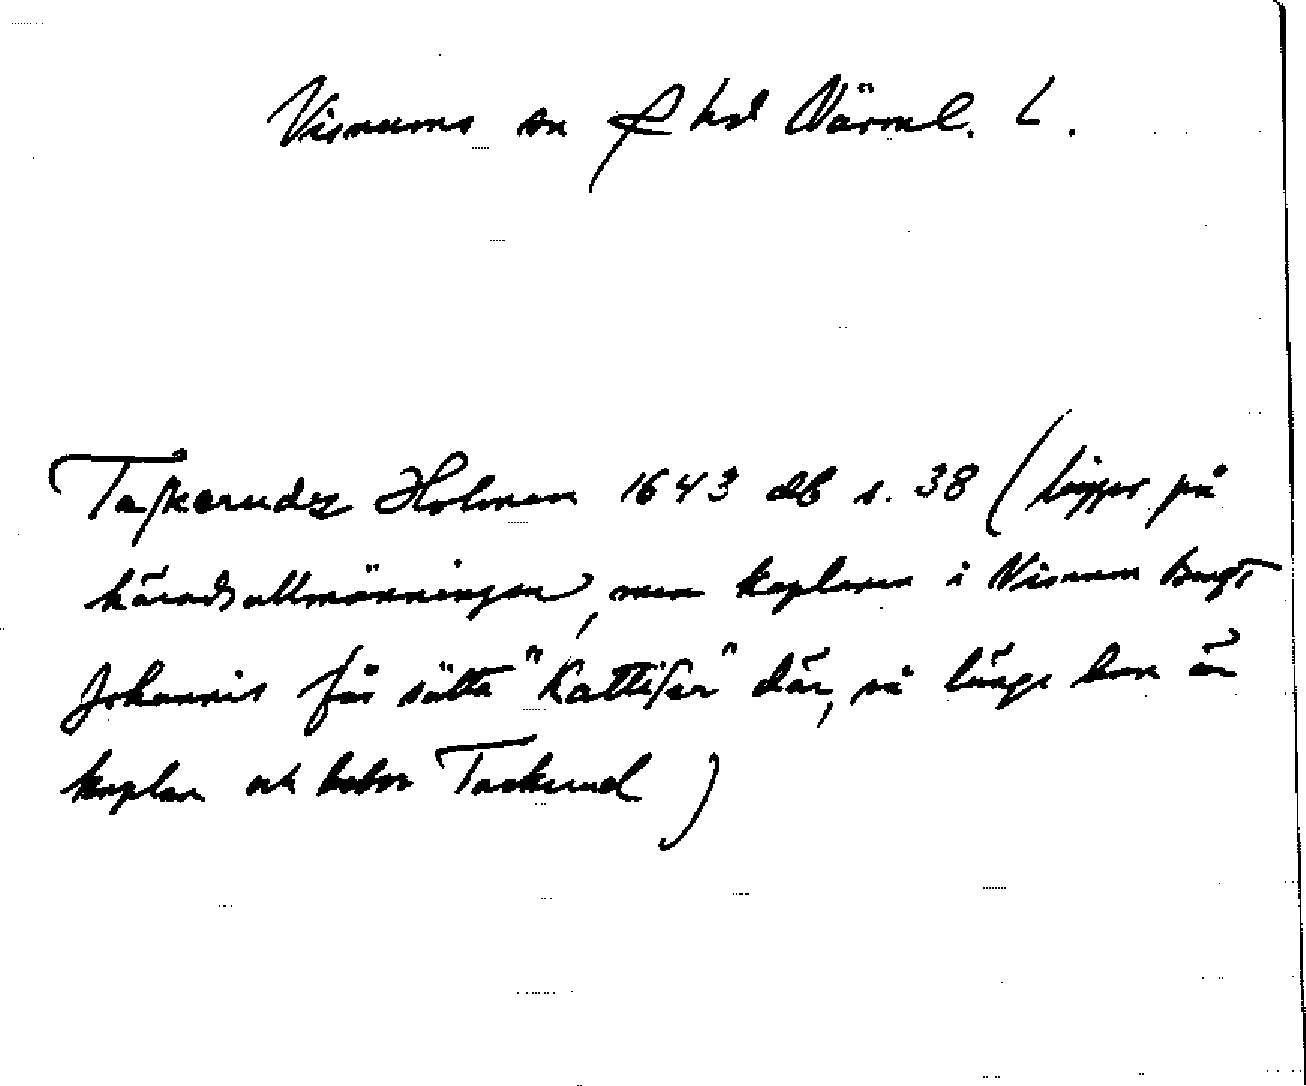 Visnums sn hd Värml. L.
Taskerudz Holmen 1643 db s. 38 (ligger på
häradsallmänningen, men kaplanen i Visnum Bengt
Johannis får sätta "Kattiser" där, så länge han är
kaplan och bebor Taskerud)